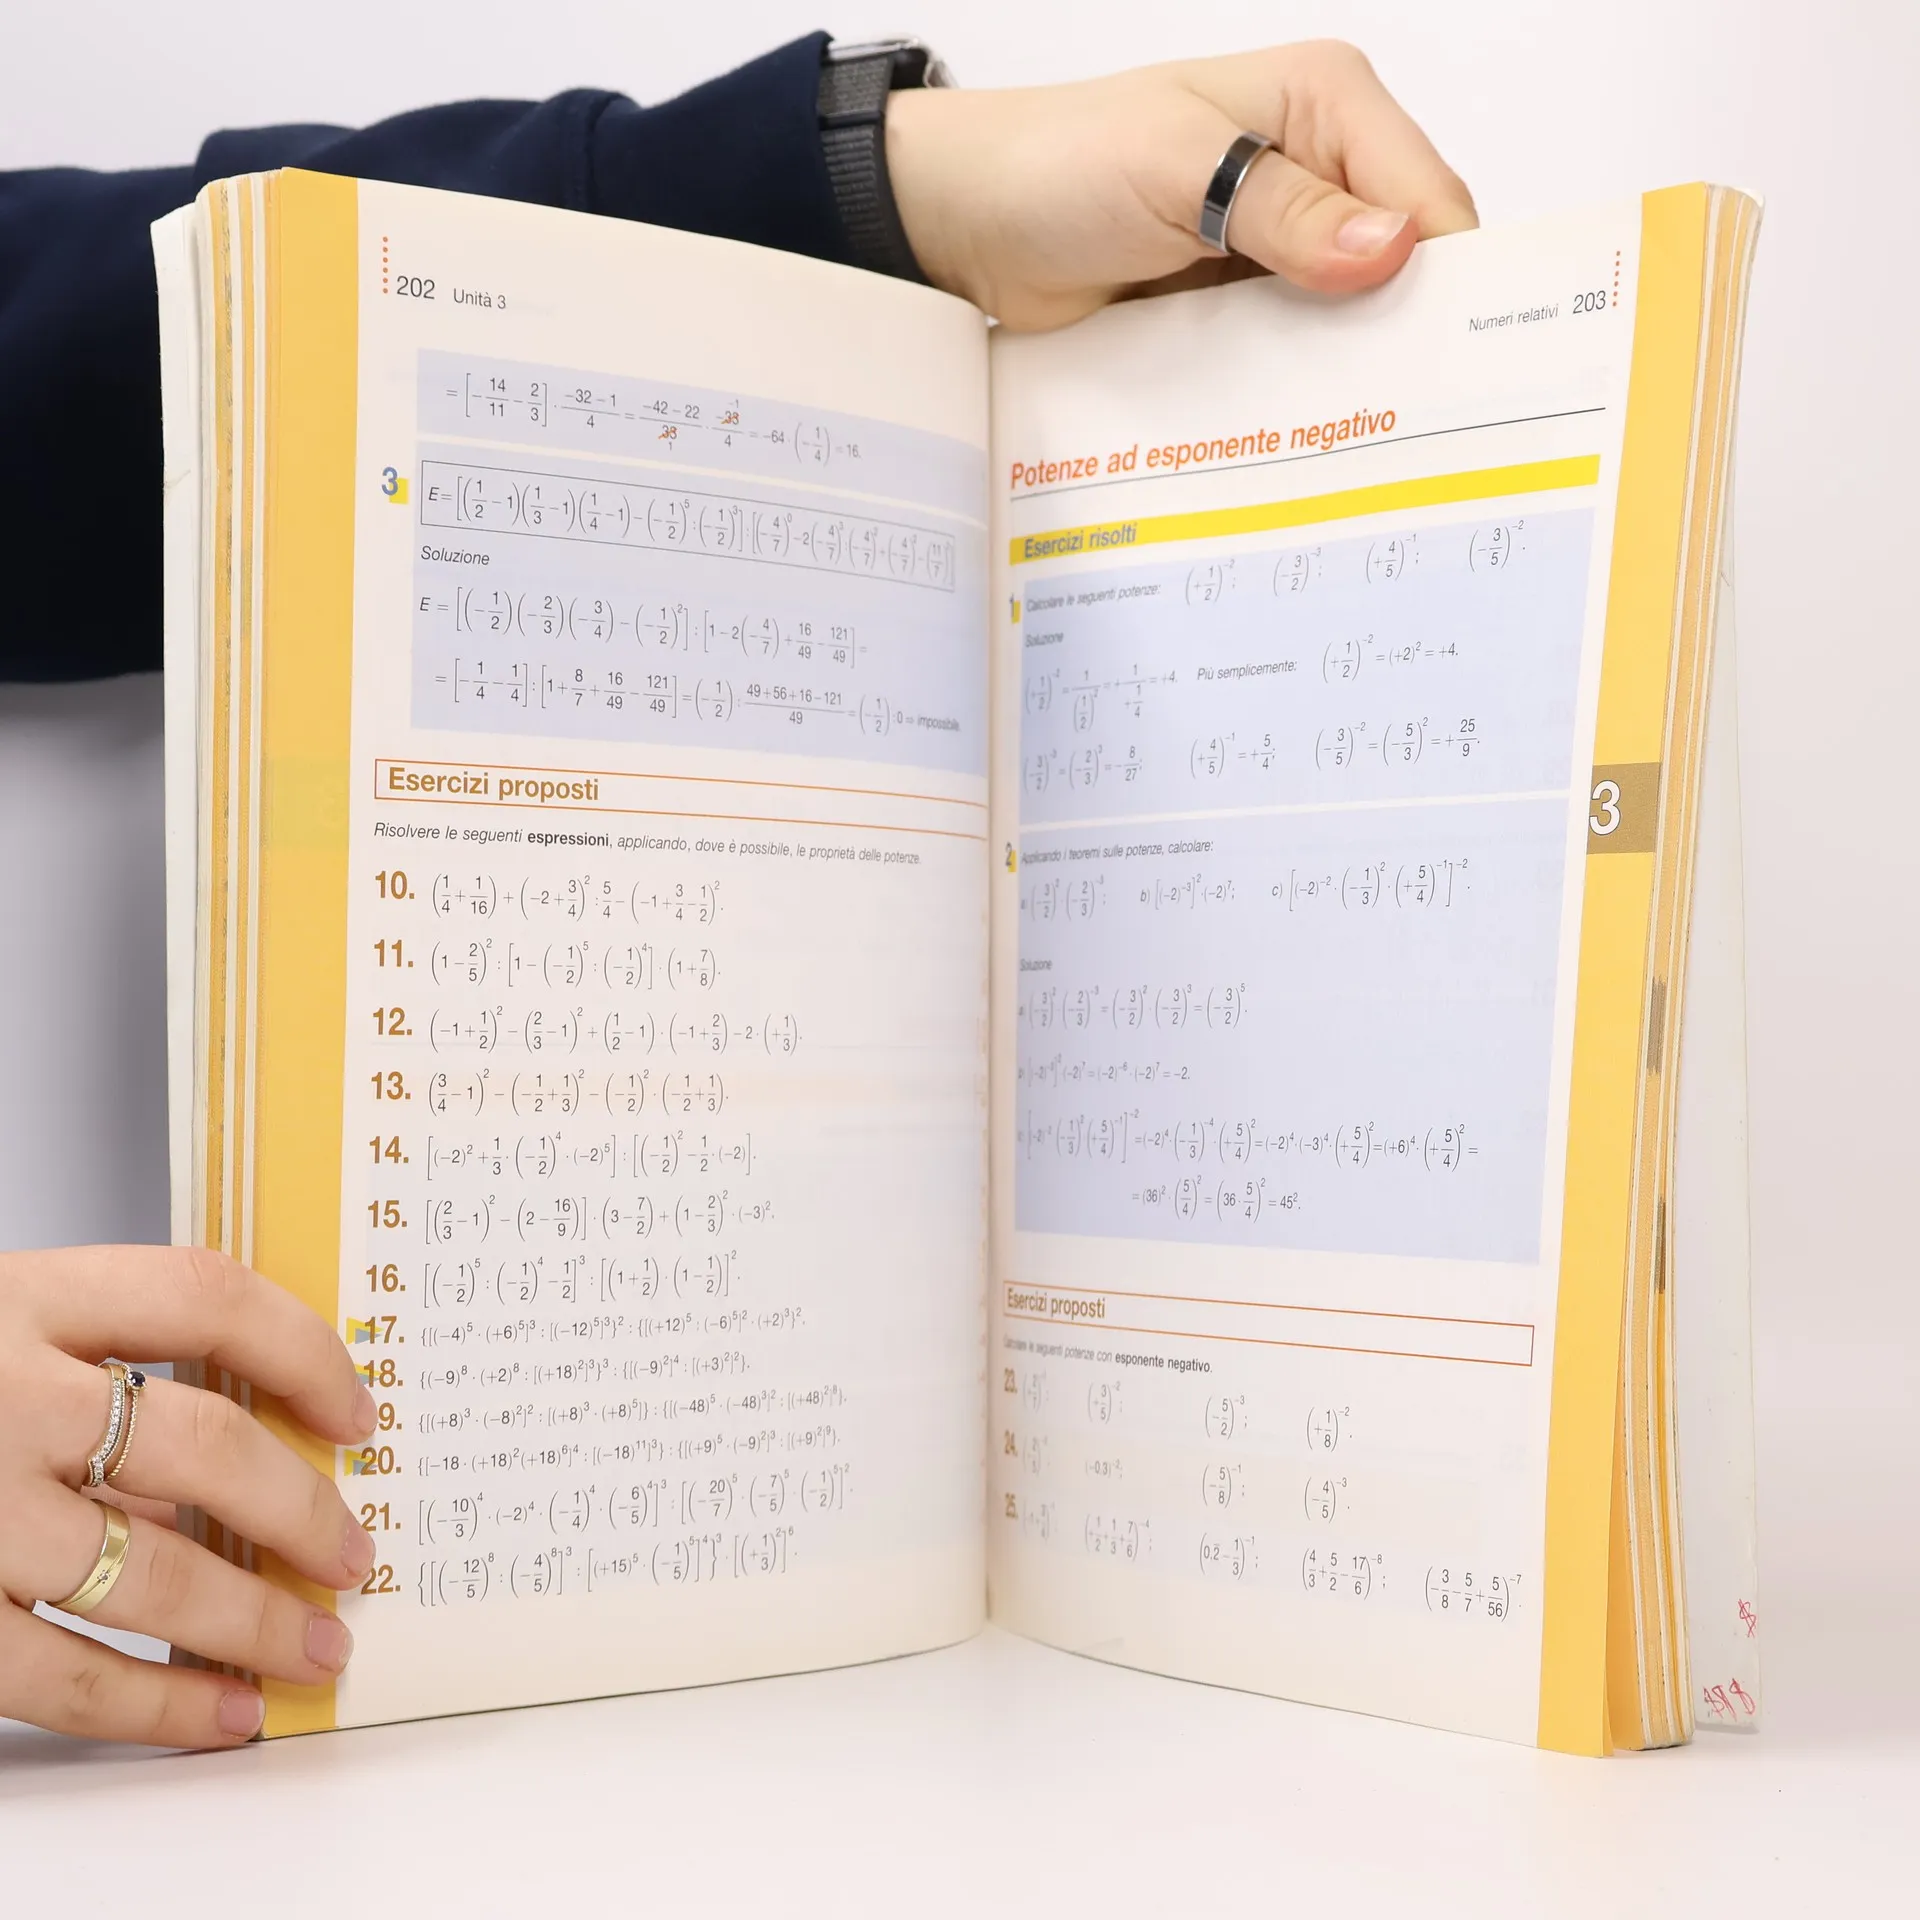 202 Unità 3
= [-14/11 - 2/3] · (-32 - 1)/4 = (-42 - 22)/33 · (-33)/4 = -64 · (-1/4) = 16.
3
E = [(1/2 - 1)(1/3 - 1)(1/4 - 1) - (-1/2)⁵ : (-1/2)³] : [(-4/7)⁰ - 2(-4/7)³ : (-4/7)² + (-4/7)² - (11/7)²]
Soluzione
E = [(-1/2)(-2/3)(-3/4) - (-1/2)²] : [1 - 2(-4/7) + 16/49 - 121/49] =
= [-1/4 - 1/4] : [1 + 8/7 + 16/49 - 121/49] = (-1/2) : (49 + 56 + 16 - 121)/49 = (-1/2) : 0 ⇒ impossibile.
Esercizi proposti
Risolvere le seguenti espressioni, applicando, dove è possibile, le proprietà delle potenze.
10. (1/4 + 1/16) + (-2 + 3/4)² : 5/4 - (-1 + 3/4 - 1/2)².
11. (1 - 2/5)² : [1 - (-1/2)⁵ : (-1/2)⁴] · (1 + 7/8).
12. (-1 + 1/2)² - (2/3 - 1)² + (1/2 - 1) · (-1 + 2/3) - 2 · (+1/3).
13. (3/4 - 1)² - (-1/2 + 1/3)² - (-1/2)² · (-1/2 + 1/3).
14. [(-2)² + 1/3 · (-1/2)⁴ · (-2)⁵] : [(-1/2)² - 1/2 · (-2)].
15. [(2/3 - 1)² - (2 - 16/9)] · (3 - 7/2) + (1 - 2/3)² · (-3)².
16. [(-1/2)⁵ : (-1/2)⁴ - 1/2]³ : [(1 + 1/2) · (1 - 1/2)]².
17. {[(-4)⁵ · (+6)⁵]³ : [(-12)⁵]³}² : {[(+12)⁵ : (-6)⁵]² · (+2)³}².
18. {(-9)⁸ · (+2)⁸ : [(+18)²]³}³ : {[(-9)²]⁴ : [(+3)²]²}.
9. {[(+8)³ · (-8)²]² : [(+8)³ · (+8)⁵]} : {[(-48)⁵ · (-48)³]² : [(+48)²]⁸}.
20. {[-18 · (+18)²(+18)⁶]⁴ : [(-18)¹¹]³} : {[(+9)⁵ · (-9)²]³ : [(+9)²]⁹}.
21. [(-10/3)⁴ · (-2)⁴ · (-1/4)⁴ · (-6/5)⁴]³ : [(-20/7)⁵ · (-7/5)⁵ · (-1/2)⁵]².
22. {[(-12/5)⁸ : (-4/5)⁸]³ : [(+15)⁵ · (-1/5)⁵]⁴}³ · [(+1/3)²]⁶.
Numeri relativi 203
Potenze ad esponente negativo
Esercizi risolti
1 Calcolare le seguenti potenze: (+1/2)⁻²; (-3/2)⁻³; (+4/5)⁻¹; (-3/5)⁻².
Soluzione
(+1/2)⁻² = 1/(1/2)² = +1/(+1/4) = +4. Più semplicemente: (+1/2)⁻² = (+2)² = +4.
(-3/2)⁻³ = (-2/3)³ = -8/27; (+4/5)⁻¹ = +5/4; (-3/5)⁻² = (-5/3)² = +25/9.
3
2 Applicando i teoremi sulle potenze, calcolare:
a) (-3/2)² · (-2/3)⁻³; b) [(-2)⁻³]² · (-2)⁷; c) [(-2)⁻² · (-1/3)² · (+5/4)⁻¹]⁻².
Soluzione
a) (-3/2)² · (-2/3)⁻³ = (-3/2)² · (-3/2)³ = (-3/2)⁵.
b) [(-2)⁻³]² · (-2)⁷ = (-2)⁻⁶ · (-2)⁷ = -2.
c) [(-2)⁻² · (-1/3)² · (+5/4)⁻¹]⁻² = (-2)⁴ · (-1/3)⁻⁴ · (+5/4)² = (-2)⁴ · (-3)⁴ · (+5/4)² = (+6)⁴ · (+5/4)² =
= (36)² · (5/4)² = (36 · 5/4)² = 45².
Esercizi proposti
Calcolare le seguenti potenze con esponente negativo.
23. (+3/5)⁻²; (-5/2)⁻³; (+1/8)⁻².
24. (-0,3)⁻²; (-5/8)⁻¹; (-4/5)⁻³.
25. (+1/2 + 1/3 + 7/6)⁻⁴; (0,2̅ - 1/3)⁻¹; (4/3 + 5/2 - 17/6)⁻⁸; (-3/8 - 5/7 + 5/56)⁻⁷.